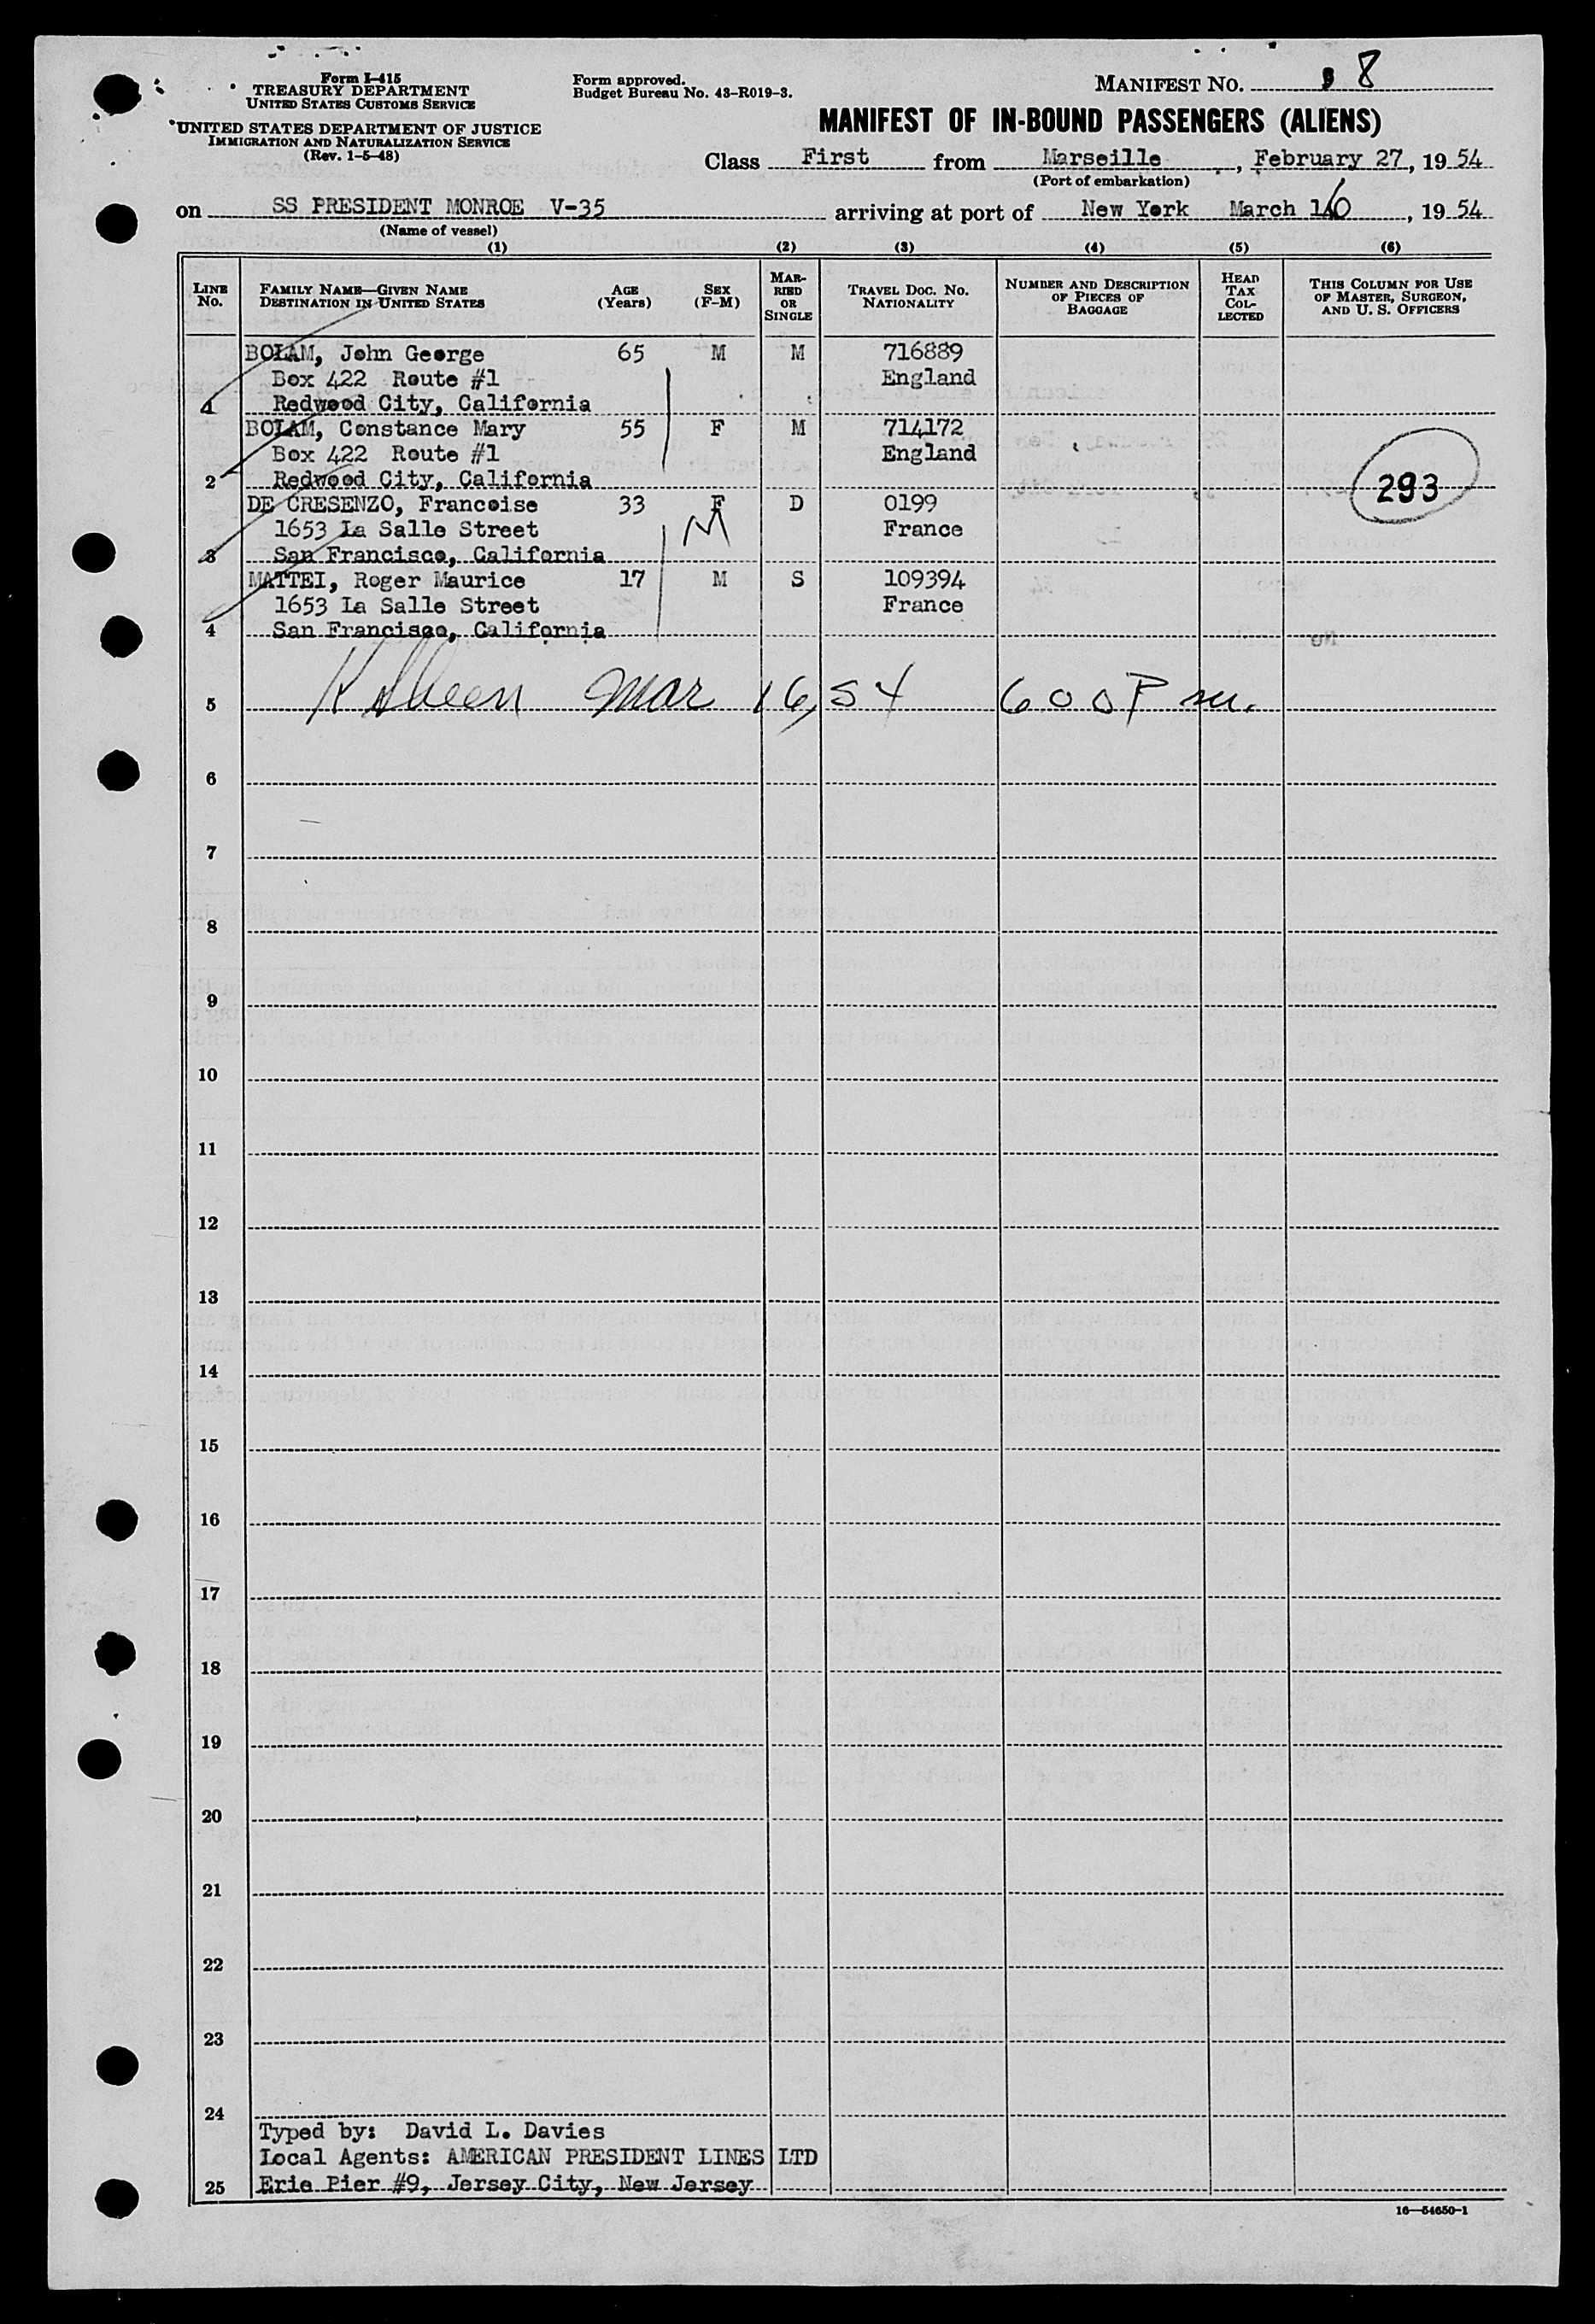 Form I-415
TREASURY DEPARTMENT
UNITED STATES CUSTOMS SERVICE
UNITED STATES DEPARTMENT OF JUSTICE
IMMIGRATION AND NATURALIZATION SERVICE
(Rev. 1-5-48)
Form approved.
Budget Bureau No. 43-R019-3.
MANIFEST NO. 8
MANIFEST OF IN-BOUND PASSENGERS (ALIENS)
Class First from Marseille, February 27, 19 54
(Port of embarkation)
on SS PRESIDENT MONROE V-35 arriving at port of New York March 16, 19 54
(Name of vessel)
(1) (2) (3) (4) (5) (6)
LINE No. FAMILY NAME—GIVEN NAME DESTINATION IN UNITED STATES AGE (Years) SEX (F-M) MARRIED OR SINGLE TRAVEL DOC. NO. NATIONALITY NUMBER AND DESCRIPTION OF PIECES OF BAGGAGE HEAD TAX COLLECTED THIS COLUMN FOR USE OF MASTER, SURGEON, AND U. S. OFFICERS
BOLAM, John George 65 M M 716889
Box 422 Route #1 England
1 Redwood City, California
BOLAM, Constance Mary 55 F M 714172
Box 422 Route #1 England
2 Redwood City, California
293
DE CRESENZO, Francoise 33 F D 0199
1653 La Salle Street M France
3 San Francisco, California
MATTEI, Roger Maurice 17 M S 109394
1653 La Salle Street France
4 San Francisco, California
5 Mar 16, 54 600 P m.
6
7
8
9
10
11
12
13
14
15
16
17
18
19
20
21
22
23
24
Typed by: David L. Davies
Local Agents: AMERICAN PRESIDENT LINES LTD
25 Erie Pier #9, Jersey City, New Jersey
16—54650-1